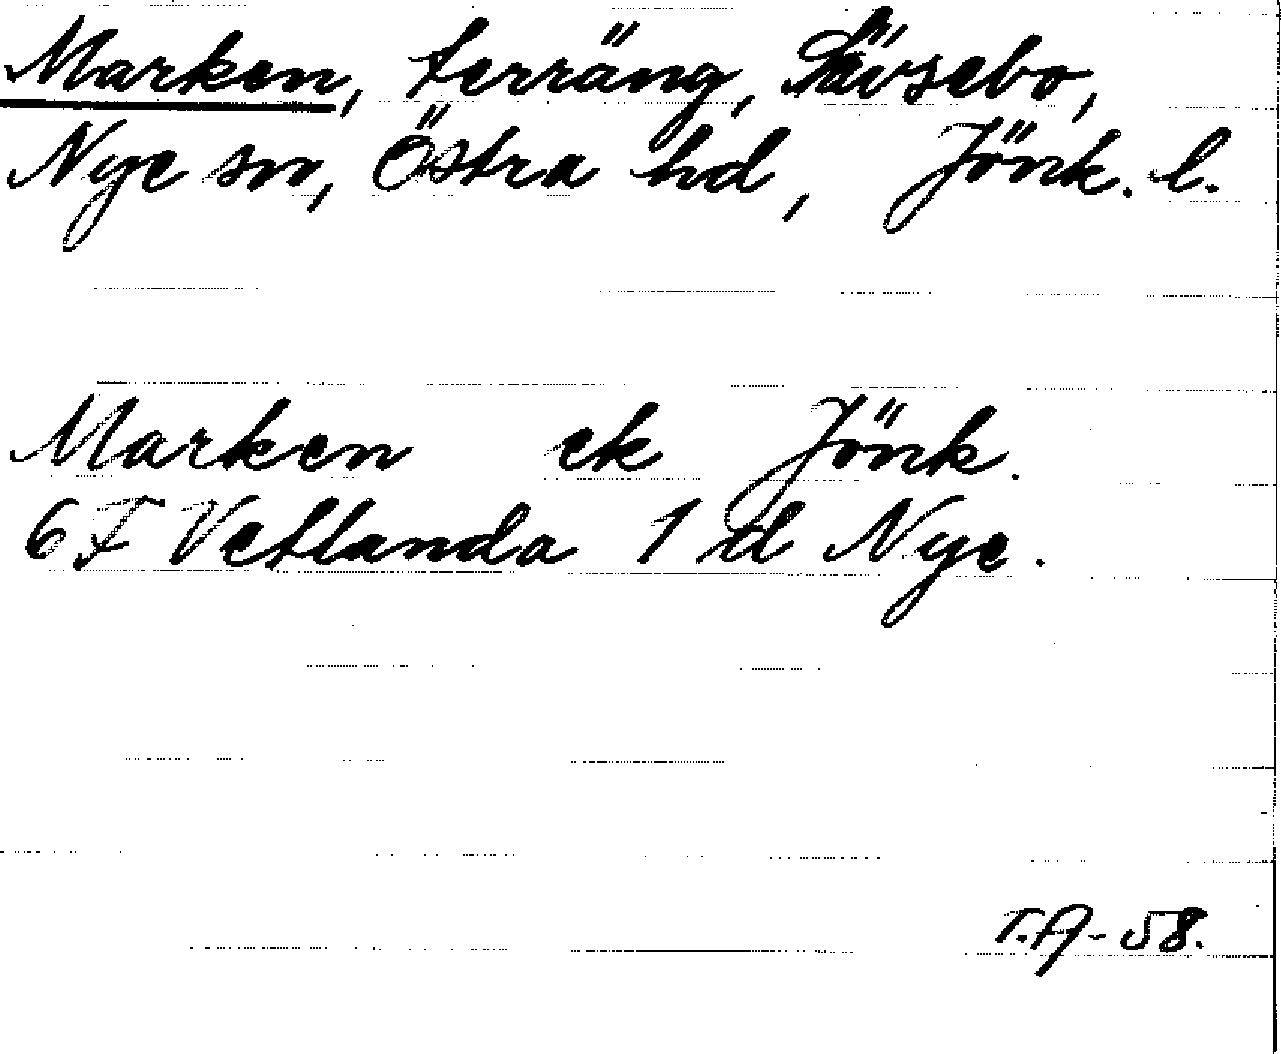 Marken, terräng, Sävsebo,
Nye sn, Östra hd, Jönk. l.
Marken ek Jönk.
6 F Vetlanda 1 d Nye.
T.A-58.